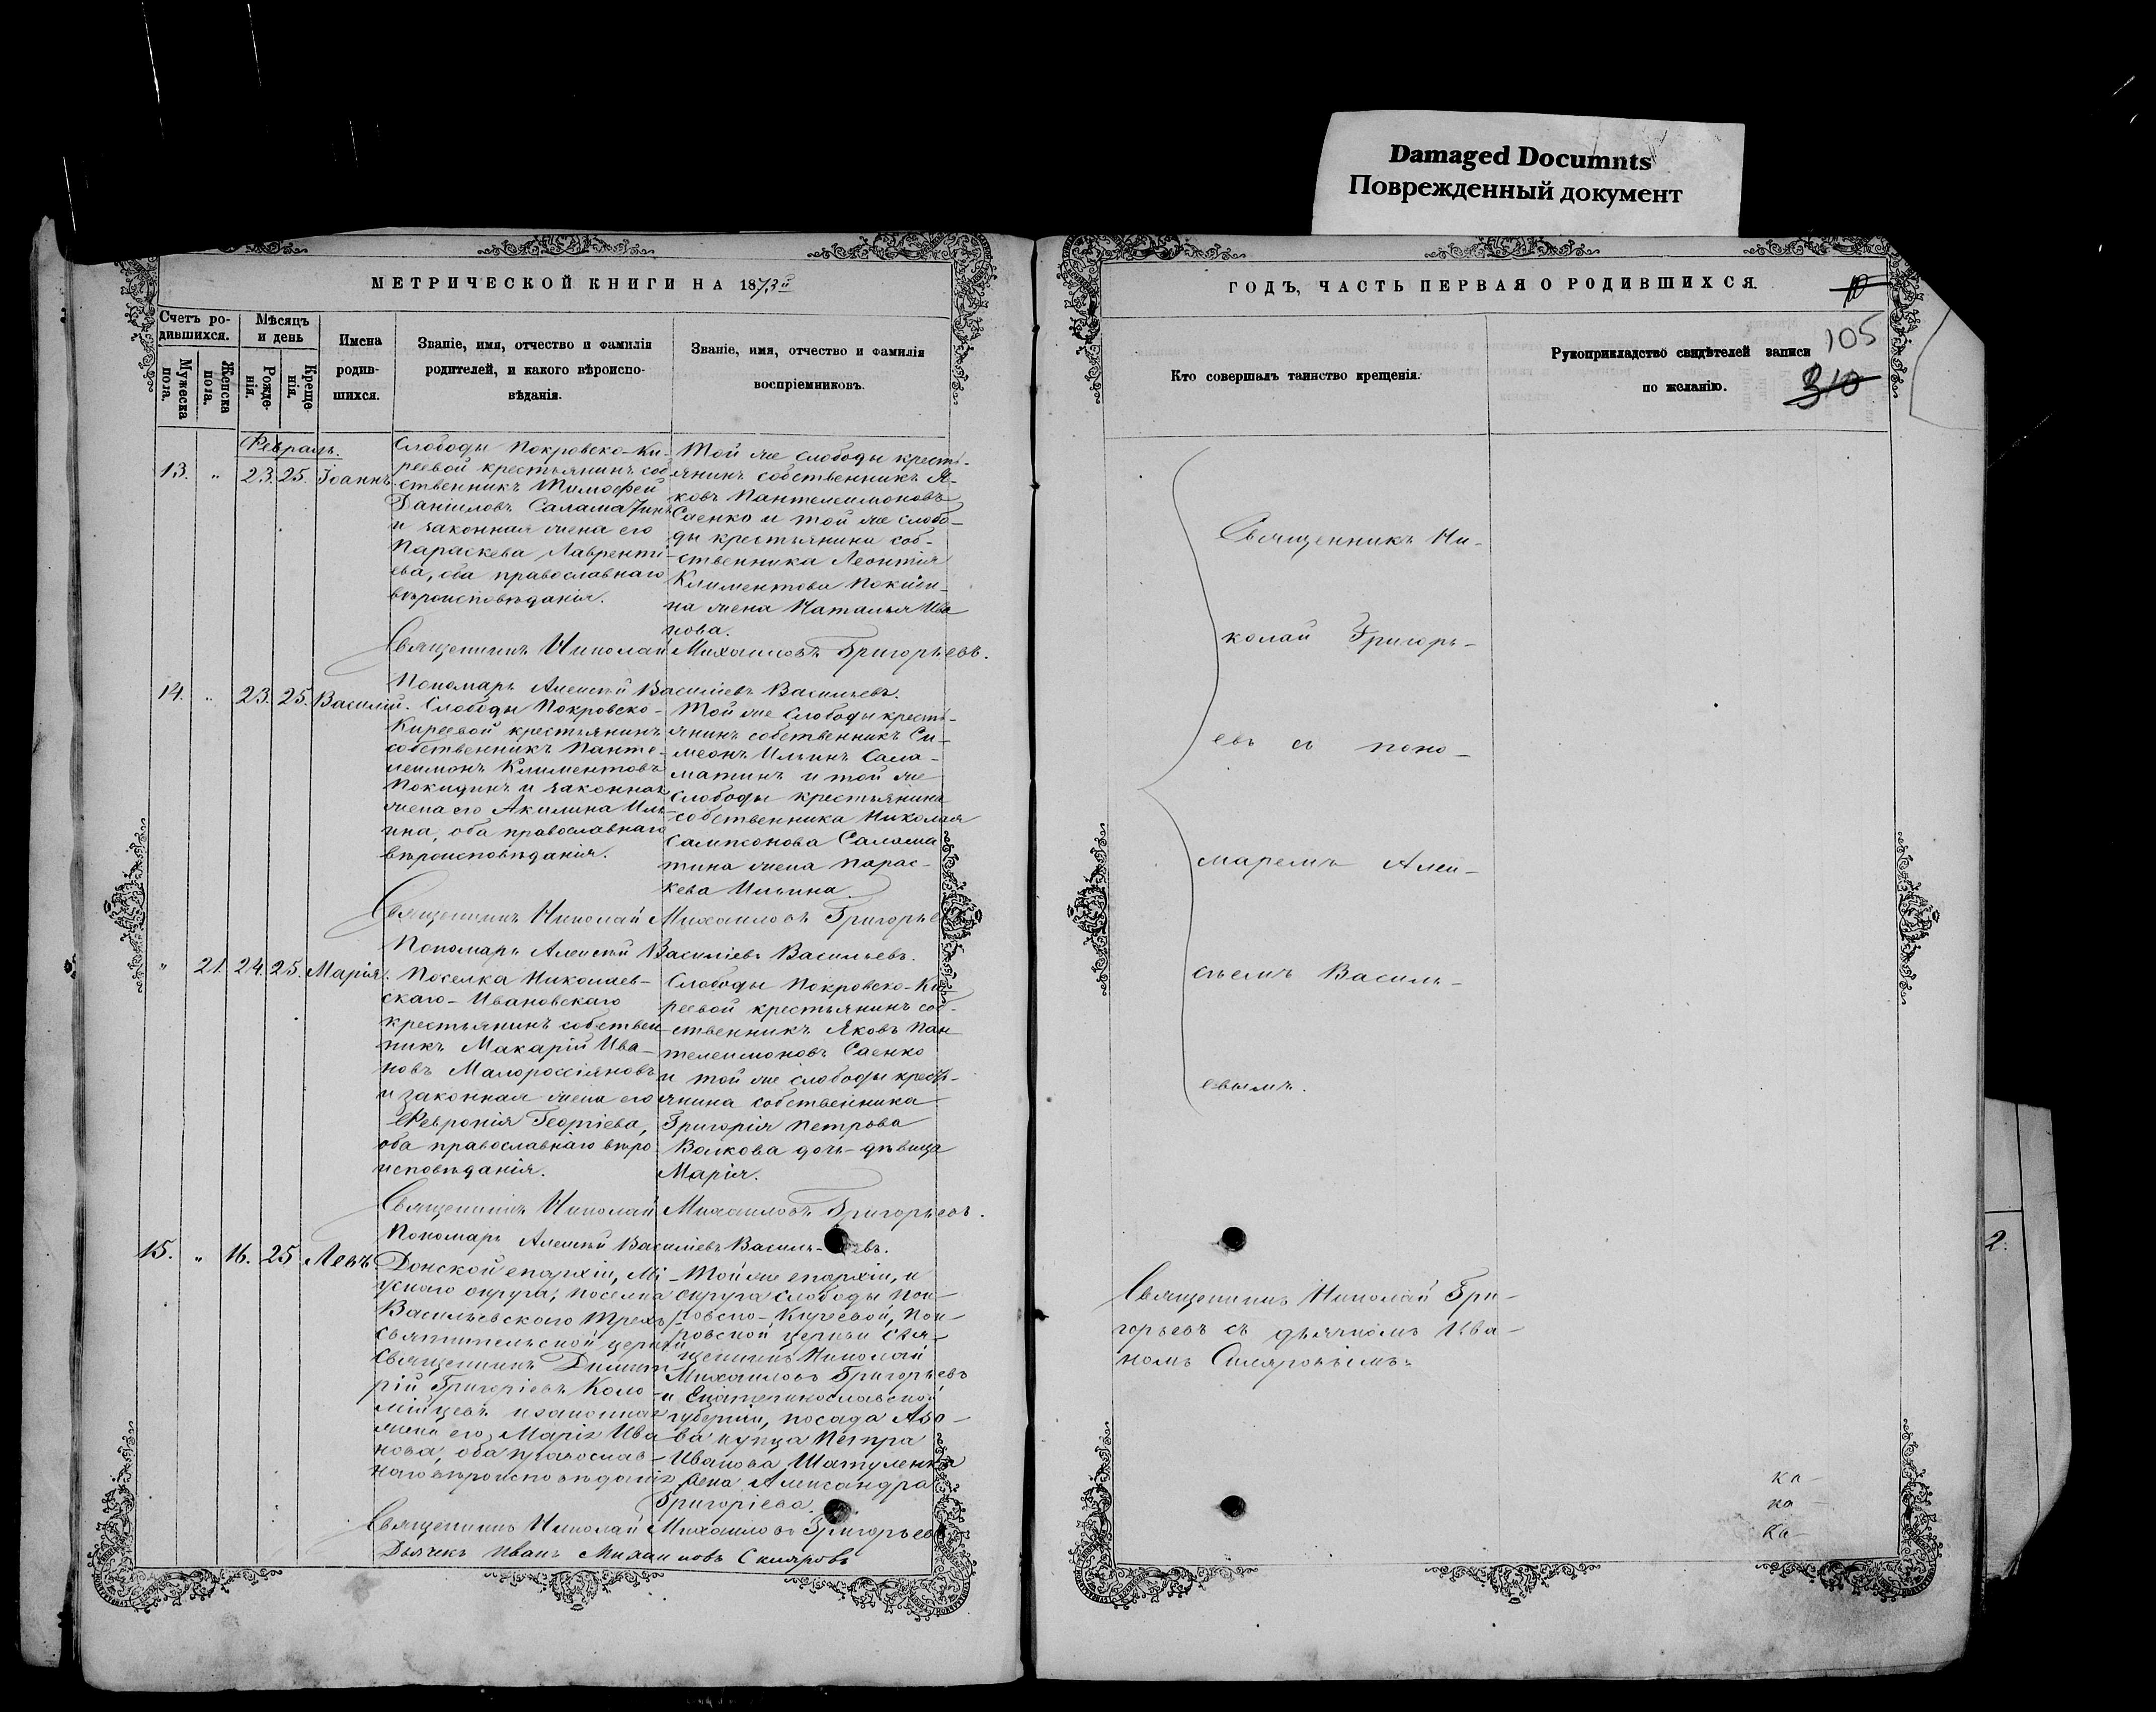 Damaged Documnts
Поврежденный документ
МЕТРИЧЕСКОЙ КНИГИ НА 1873й
Счетъ ро-
дившихся.
Мужеска
пола.
Женска
пола.
Мѣсяцъ
и день
Рожде-
нія.
Креще-
нія.
Имена
родив-
шихся.
Званіе, имя, отчество и фамилія
родителей, и какого вѣроиспо-
вѣданія.
Званіе, имя, отчество и фамилія
воспріемниковъ.
Февраль.
13. " 23. 25. Іоаннъ
Слободы Покровско-Ки-
реевой крестьянинъ соб-
ственникъ Тимофей
Даніиловъ Саламатинъ
и законная жена его
Параскева Лавренті-
ева, оба православнаго
вѣроисповѣданія.
Той же слободы кресть-
янинъ собственникъ Я-
ковъ Пантелеимоновъ
Саенко и той же слобо-
ды крестьянина соб-
ственника Леонтія
Климентова Покиди-
на жена Наталья Ива
нова.
Священникъ Николай Михаиловъ Григорьевъ.
Пономарь Алексѣй Василіевъ Васильевъ.
14. " 23. 25. Василій.
Слободы Покровско-
Киреевой крестьянинъ
собственникъ Панте-
леимонъ Климентовъ
Покидинъ и законная
жена его Акилина Иль-
ина, оба православнаго
вѣроисповѣданія.
Той же слободы кресть-
янинъ собственникъ Си-
меонъ Ильинъ Сала-
матинъ и той же
слободы крестьянина
собственника Николая
Сампсонова Салама
тина жена Парас-
кева Ильина
Священникъ Николай Михаиловъ Григорьевъ
Пономарь Алексѣй Василіевъ Васильевъ.
" 21. 24. 25. Марія.
Поселка Николаев-
скаго-Ивановскаго
крестьянинъ собствен
никъ Макарій Ива-
новъ Малороссіяновъ
и законная жена его
Февронія Георгіева,
оба православнаго вѣро
исповѣданія.
Слободы Покровско-Ки-
реевой крестьянинъ соб-
ственникъ Яковъ Пан
телеимоновъ Саенко
и той же слободы кресть-
янина собственника
Григорія Петрова
Волкова дочь-дѣвица
Марія.
Священникъ Николай Михаиловъ Григорьевъ.
Пономарь Алексѣй Василіевъ Василь-евъ.
15. " 16. 25 Левъ
Донской епархіи, Мі-
ускаго округа, поселка
Васильевскаго Трехъ-
святительской церкви
Священникъ Димит
рій Григоріевъ Коло-
мійцевъ и законная
жена его Марія Ива
нова, оба православ-
наго вѣроисповѣданія
Той же епархіи, и
округа слободы Пок-
ровско-Киреевой, Пок-
ровской церкви свя-
щенникъ Николай
Михаиловъ Григорьевъ
и Екатеринославской
губерніи, посада Азо-
ва купца Петра
Иванова Шатуленка
жена Александра
Григоріева.
Священникъ Николай Михаиловъ Григорьевъ
Дьячекъ Иванъ Михаиловъ Скляровъ
ГОДЪ, ЧАСТЬ ПЕРВАЯ О РОДИВШИХСЯ.
105
310
Кто совершалъ таинство крещенія.
Рукоприкладство свидѣтелей записи
по желанію.
Священникъ Ни-
колай Григорь-
евъ съ поно-
маремъ Алек-
сѣемъ Василь-
евымъ.
Священникъ Николай Гри-
горьевъ съ дьячкомъ Ива-
номъ Скляровымъ.
ка-
на-
ка-
2.